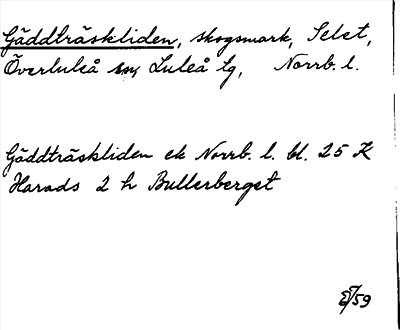 Gäddträskliden, skogsmark, Selet,
Överluleå sn, Luleå tg, Norrb. l.
Gäddträskliden ek Norrb. l. bl. 25 K
Harads 2 h Bullerberget
59